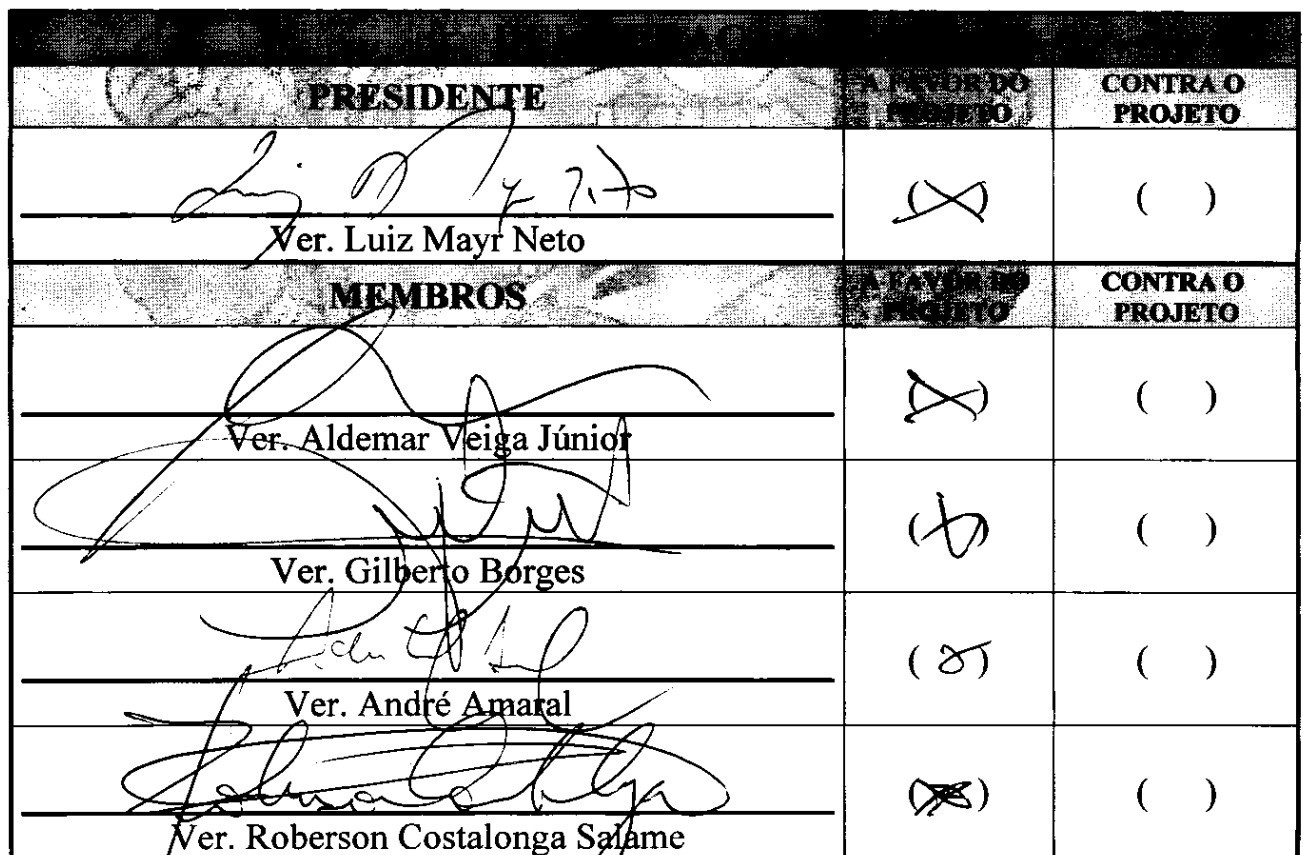 PRESIDENTE A FAVOR DO PROJETO CONTRA O PROJETO
( X ) ( )
Ver. Luiz Mayr Neto
MEMBROS A FAVOR DO PROJETO CONTRA O PROJETO
( X ) ( )
Ver. Aldemar Veiga Júnior
( ) ( )
Ver. Gilberto Borges
( ) ( )
Ver. André Amaral
( X ) ( )
Ver. Roberson Costalonga Salame